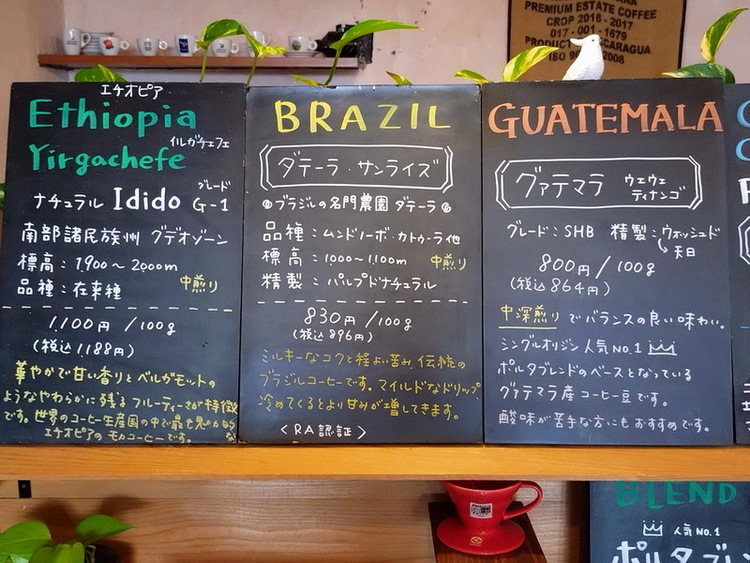 PREMIUM ESTATE COFFEE
CROP 2016 - 2017
017 - 001 - 1679
エチオピア
Ethiopia
イルガチェフェ
Yirgachefe
グレード
ナチュラル Idido G-1
南部諸民族州 グデオゾーン
標高：1,900〜2,000m
品種：在来種 中煎り
1,100円/100g
(税込1188円)
華やかで甘い香りとベルガモットの
ようなやわらかに残るフルーティーさが特徴
です。世界のコーヒー生産国の中で最も
エチオピアのモカコーヒーです。
BRAZIL
ダテーラ・サンライズ
ブラジルの名門農園 ダテーラ
品種：ムンドノーボ・カトゥーラ他
標高：1,000〜1,100m 中煎り
精製：パルプドナチュラル
830円/100g
(税込896円)
ミルキーなコクと程よい苦み、伝統の
ブラジルコーヒーです。マイルドなドリップ
冷めてくるとより甘みが増してきます。
<RA認証>
GUATEMALA
グァテマラ ウェウェ
ティナンゴ
グレード：SHB 精製：ウォッシュド
天日
800円/100g
(税込864円)
中深煎りでバランスの良い味わい。
シングルオリジン 人気NO.1
ポルタブレンドのベースとなっている
グァテマラ産コーヒー豆です。
酸味が苦手な方にもおすすめです。
BLEND
人気No.1
ポルタブレ